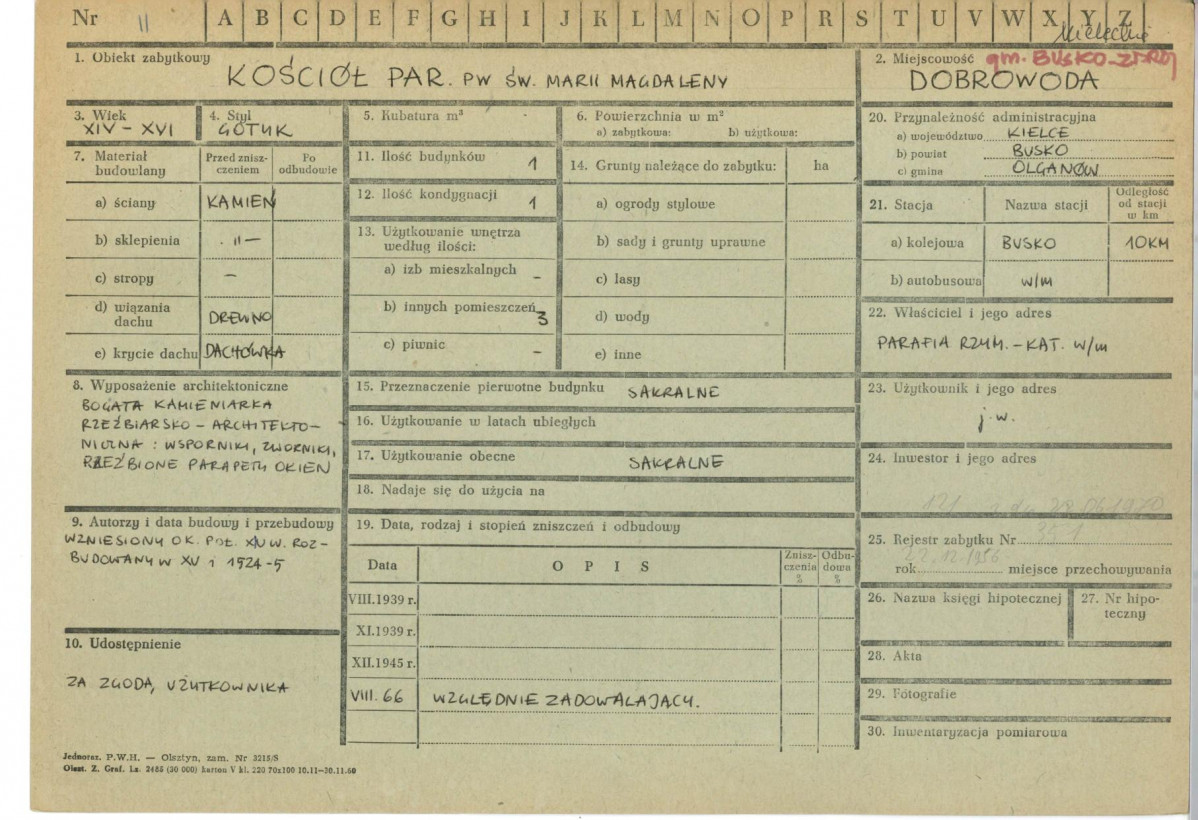 Nr 11 A B C D E F G H I J K L M N O P R S T U V W X Y Z
kieleckie
1. Obiekt zabytkowy
KOŚCIÓŁ PAR. PW ŚW. MARII MAGDALENY
2. Miejscowość gm. BUSKO-ZDRÓJ
DOBROWODA
3. Wiek
XIV – XVI
4. Styl
GOTYK
5. Kubatura m³
6. Powierzchnia w m²
a) zabytkowa: b) użytkowa:
7. Materiał budowlany
Przed znisz-
czeniem
Po
odbudowie
a) ściany KAMIEŃ
b) sklepienia -11-
c) stropy –
d) wiązania
dachu DREWNO
e) krycie dachu DACHÓWKA
8. Wyposażenie architektoniczne
BOGATA KAMIENIARKA
RZEŹBIARSKO – ARCHITEKTO-
NICZNA : WSPORNIKI, ZWORNIKI,
RZEŹBIONE PARAPETY OKIEN
9. Autorzy i data budowy i przebudowy
WZNIESIONY OK. POŁ. XIV W. ROZ-
BUDOWANY W XV i 1524-5
10. Udostępnienie
ZA ZGODĄ UŻYTKOWNIKA
11. Ilość budynków 1
12. Ilość kondygnacji 1
13. Użytkowanie wnętrza
według ilości:
a) izb mieszkalnych –
b) innych pomieszczeń 3
c) piwnic –
14. Grunty należące do zabytku: ha
a) ogrody stylowe
b) sady i grunty uprawne
c) lasy
d) wody
e) inne
15. Przeznaczenie pierwotne budynku SAKRALNE
16. Użytkowanie w latach ubiegłych
17. Użytkowanie obecne SAKRALNE
18. Nadaje się do użycia na
19. Data, rodzaj i stopień zniszczeń i odbudowy
Data O P I S
Znisz-
czenia
%
Odbu-
dowa
%
VIII.1939 r.
XI.1939 r.
XII.1945 r.
VIII. 66 WZGLĘDNIE ZADOWALAJĄCY.
20. Przynależność administracyjna
a) województwo KIELCE
b) powiat BUSKO
c) gmina OLGANÓW
21. Stacja Nazwa stacji
Odległość
od stacji
w km
a) kolejowa BUSKO 10KM
b) autobusowa w/m
22. Właściciel i jego adres
PARAFIA RZYM. – KAT. w/m
23. Użytkownik i jego adres
j.w.
24. Inwestor i jego adres
25. Rejestr zabytku Nr 331
22.12.1956
rok miejsce przechowywania
26. Nazwa księgi hipotecznej
27. Nr hipo-
teczny
28. Akta
29. Fotografie
30. Inwentaryzacja pomiarowa
Jednoraz. P.W.H. — Olsztyn, zam. Nr 3215/S
Olszt. Z. Graf. Lz. 2485 (30 000) karton V kl. 220 70x100 10.11—30.11.60